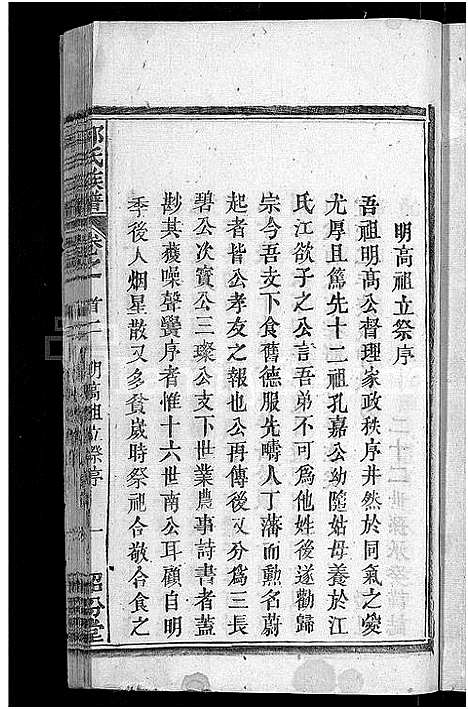 明高祖立祭序
吾祖明高公督理家政秩序井然於同氣之愛
尤厚且篤先十二祖孔嘉公幼隨姑母養於江
氏江欲子之公言吾弟不可爲他姓後遂勸歸
宗今吾支下食舊德服先疇人丁藩而勳名蔚
起者皆公孝友之報也公再傳後又分爲三長
碧公次寶公三璨公支下世業農事詩書者蓋
尠其獲噪聲黌序者惟十六世南公耳顧自明
季後人烟星散又多貧歲時祭祀合敬合食之
氏族譜
卷之一
首二
明高祖立祭序
一